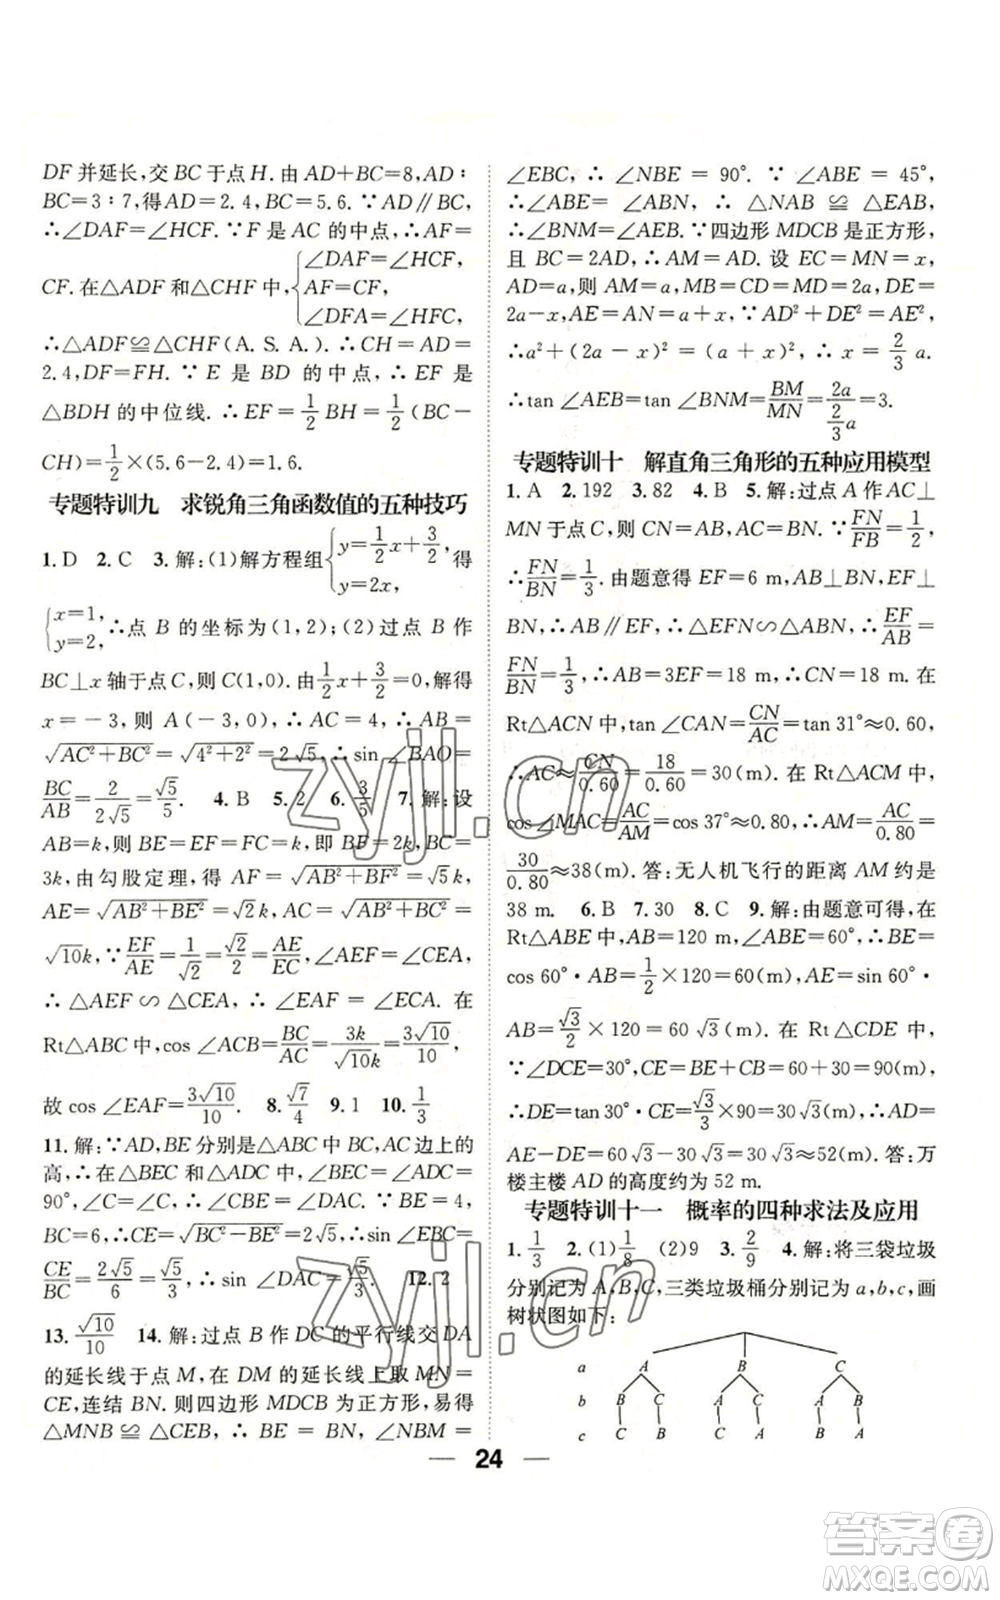 DF 并延长,交 BC 于点 H. 由 AD+BC=8,AD∶
BC=3∶7,得AD=2.4,BC=5.6. ∵AD∥BC,
∴∠DAF=∠HCF. ∵F 是 AC 的中点,∴AF=
CF. 在△ADF 和△CHF 中,{∠DAF=∠HCF,
AF=CF,
∠DFA=∠HFC,
∴△ADF≌△CHF(A.S.A.). ∴CH=AD=
2.4,DF=FH. ∵E 是 BD 的中点,∴EF 是
△BDH 的中位线. ∴EF=1/2 BH=1/2(BC-
CH)=1/2×(5.6-2.4)=1.6.
专题特训九 求锐角三角函数值的五种技巧
1. D 2. C 3. 解:(1)解方程组{y=1/2x+3/2, y=2x, 得
{x=1, y=2, ∴点 B 的坐标为(1,2);(2)过点 B 作
BC⊥x 轴于点 C,则 C(1,0). 由1/2x+3/2=0,解得
x=-3,则 A(-3,0),∴AC=4,∴AB=
√(AC²+BC²)=√(4²+2²)=2√5,∴sin ∠BAO=
BC/AB=2/(2√5)=√5/5. 4. B 5. 2 6. 3/5 7. 解:设
AB=k,则 BE=EF=FC=k,即 BF=2k,BC=
3k,由勾股定理,得 AF=√(AB²+BF²)=√5k,
AE=√(AB²+BE²)=√2k,AC=√(AB²+BC²)=
√10k,∵EF/AE=1/√2=√2/2=AE/EC,
∴△AEF∽△CEA,∴∠EAF=∠ECA. 在
Rt△ABC 中,cos ∠ACB=BC/AC=3k/(√10k)=3√10/10,
故 cos ∠EAF=3√10/10. 8. √7/4 9. 1 10. 1/3
11. 解:∵AD,BE 分别是△ABC 中 BC,AC 边上的
高,∴在△BEC 和△ADC 中,∠BEC=∠ADC=
90°,∴∠CBE=∠DAC. ∵BE=4,
BC=6,∴CE=√(BC²-BE²)=2√5,∴sin ∠CBE=
CE/BC=2√5/6=√5/3,∴sin ∠DAC=√5/3. 12. 2
13. √10/10 14. 解:过点 B 作 DC 的平行线交 DA
的延长线于点 M,在 DM 的延长线上取 MN=
CE,连结 BN. 则四边形 MDCB 为正方形,易得
△MNB≌△CEB,∴BE=BN,∠NBM=
∠EBC,∴∠NBE=90°. ∵∠ABE=45°,
∴∠ABE=∠ABN,∴△NAB≌△EAB,
∴∠BNM=∠AEB. ∵四边形 MDCB 是正方形,
且 BC=2AD,∴AM=AD. 设 EC=MN=x,
AD=a,则 AM=a,MB=CD=MD=2a,DE=
2a-x,AE=AN=a+x,∵AD²+DE²=AE²,
∴a²+(2a-x)²=(a+x)²,∴x=2/3 a.
∴tan ∠AEB=tan ∠BNM=BM/MN=2a/(2/3 a)=3.
专题特训十 解直角三角形的五种应用模型
1. A 2. 192 3. 82 4. B 5. 解:过点 A 作 AC⊥
MN 于点 C,则 CN=AB,AC=BN. ∵FN/FB=1/2,
∴FN/BN=1/3. 由题意得 EF=6 m,AB⊥BN,EF⊥
BN,∴AB∥EF,∴△EFN∽△ABN,∴EF/AB=
FN/BN=1/3,∴AB=3EF=18 m. ∴CN=18 m. 在
Rt△ACN 中,tan ∠CAN=CN/AC=tan 31°≈0.60,
∴AC≈CN/0.60=18/0.60=30(m). 在 Rt△ACM 中,
cos ∠MAC=AC/AM=cos 37°≈0.80,∴AM≈AC/0.80=
30/0.80≈38(m). 答:无人机飞行的距离 AM 约是
38 m. 6. B 7. 30 8. C 9. 解:由题意可得,在
Rt△ABE 中,AB=120 m,∠ABE=60°,∴BE=
cos 60°·AB=1/2×120=60(m),AE=sin 60°·
AB=√3/2×120=60√3(m). 在 Rt△CDE 中,
∵∠DCE=30°,CE=BE+CB=60+30=90(m),
∴DE=tan30°·CE=√3/3×90=30√3(m),∴AD=
AE-DE=60√3-30√3=30√3≈52(m). 答:万
楼主楼 AD 的高度约为 52 m.
专题特训十一 概率的四种求法及应用
1. 1/3 2. (1)1/8 (2)9 3. 2/9 4. 解:将三袋垃圾
分别记为 A,B,C,三类垃圾桶分别记为 a,b,c,画
树状图如下:
a A B C
b B C A C A B
c C B C A B A
24
zyjl.cn
zyjl.cn
答案圈
MXQE.COM